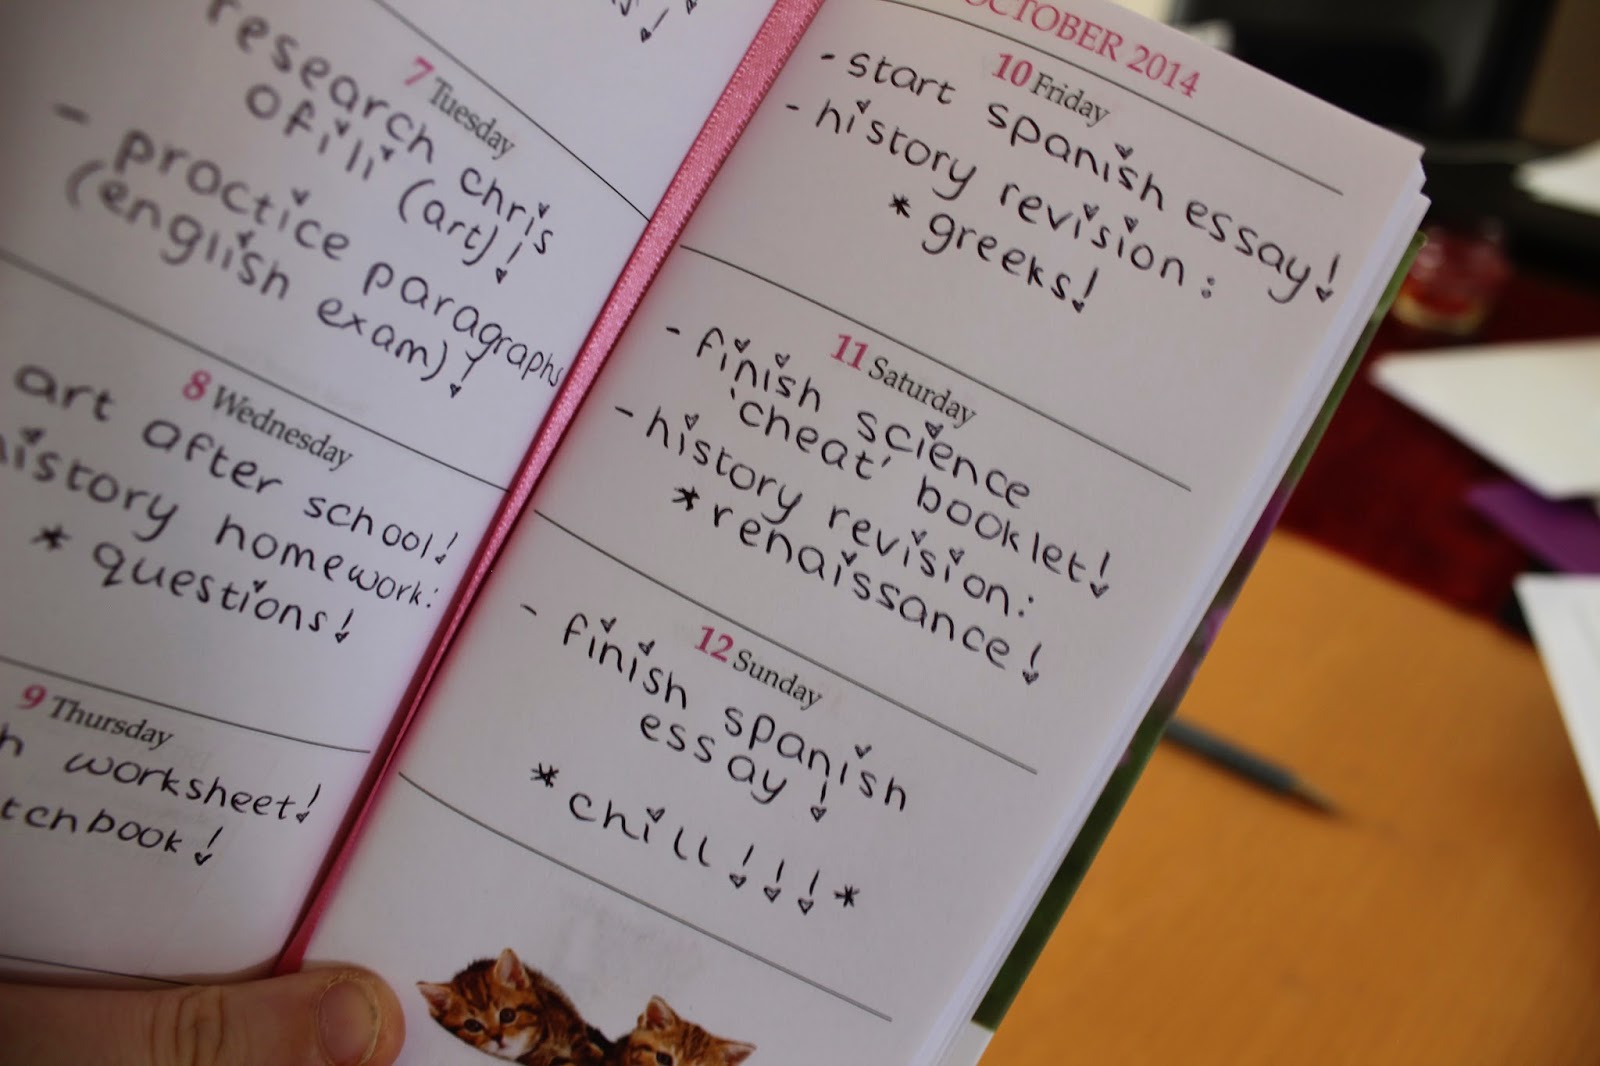 7 Tuesday
research chris
ofili (art)!
- practice paragraphs
(english exam)!
8 Wednesday
art after school!
history homework:
* questions!
9 Thursday
worksheet!
OCTOBER 2014
10 Friday
- start spanish essay!
- history revision:
* greeks!
11 Saturday
- finish science
'cheat' booklet!
- history revision:
* renaissance!
12 Sunday
- finish spanish
essay!
* chill!!! *